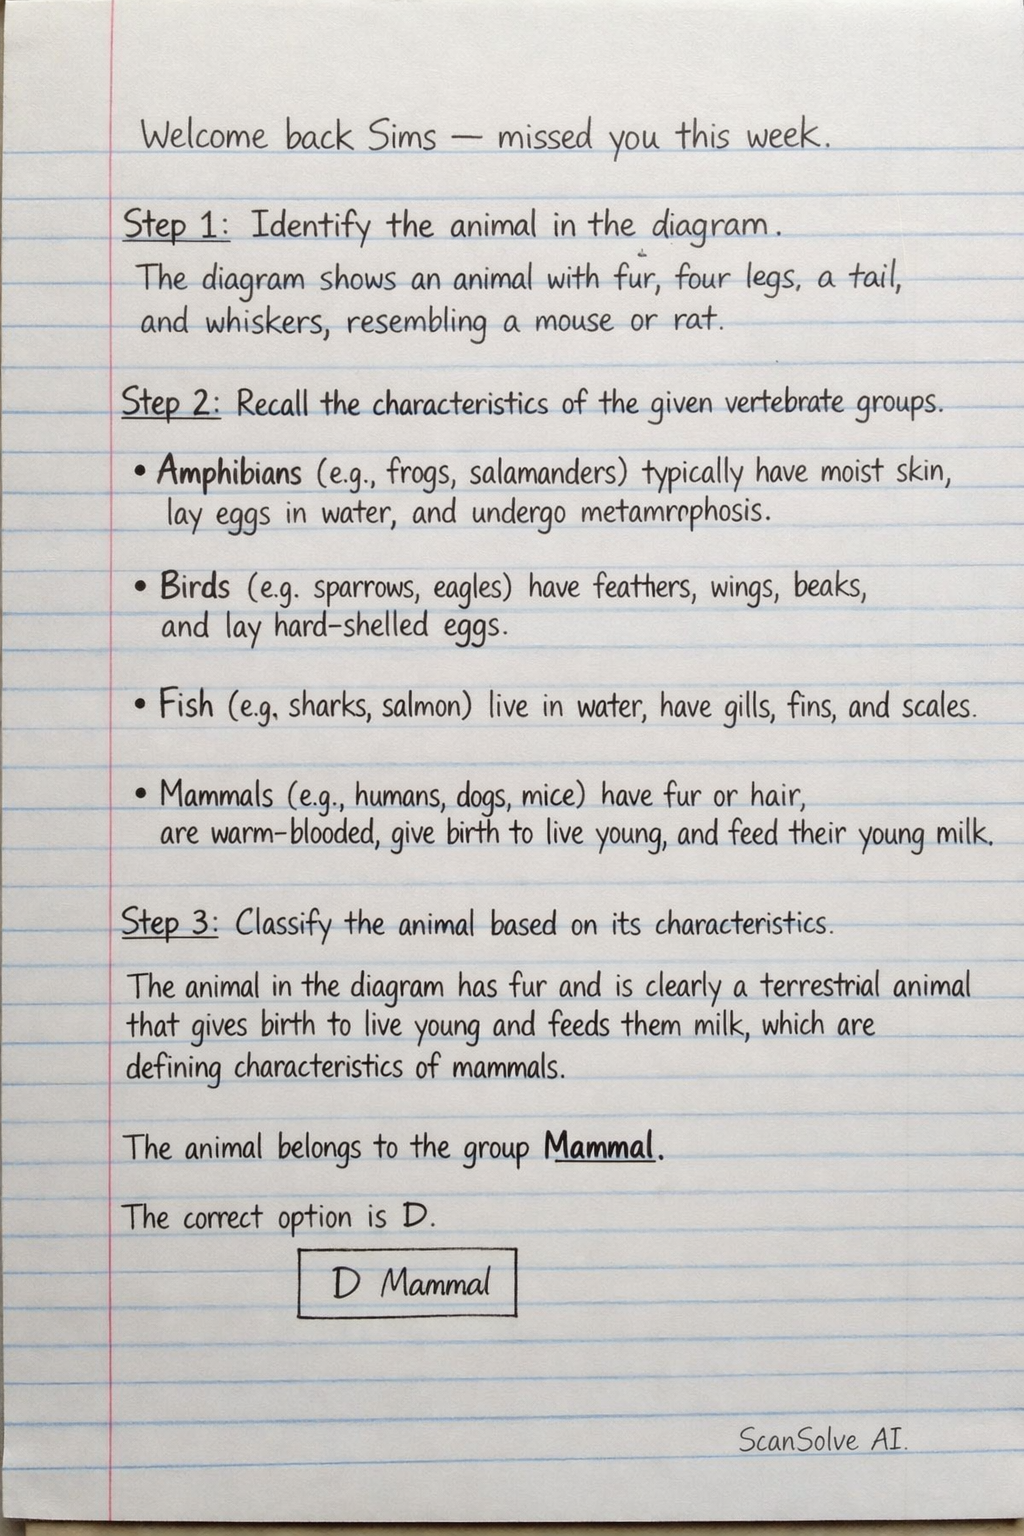 Welcome back Sims — missed you this week.
Step 1: Identify the animal in the diagram.
The diagram shows an animal with fur, four legs, a tail,
and whiskers, resembling a mouse or rat.
Step 2: Recall the characteristics of the given vertebrate groups.
• Amphibians (e.g., frogs, salamanders) typically have moist skin,
lay eggs in water, and undergo metamrphosis.
• Birds (e.g. sparrows, eagles) have feathers, wings, beaks,
and lay hard-shelled eggs.
• Fish (e.g. sharks, salmon) live in water, have gills, fins, and scales.
• Mammals (e.g., humans, dogs, mice) have fur or hair,
are warm-blooded, give birth to live young, and feed their young milk.
Step 3: Classify the animal based on its characteristics.
The animal in the diagram has fur and is clearly a terrestrial animal
that gives birth to live young and feeds them milk, which are
defining characteristics of mammals.
The animal belongs to the group Mammal.
The correct option is D.
D Mammal
ScanSolve AI.